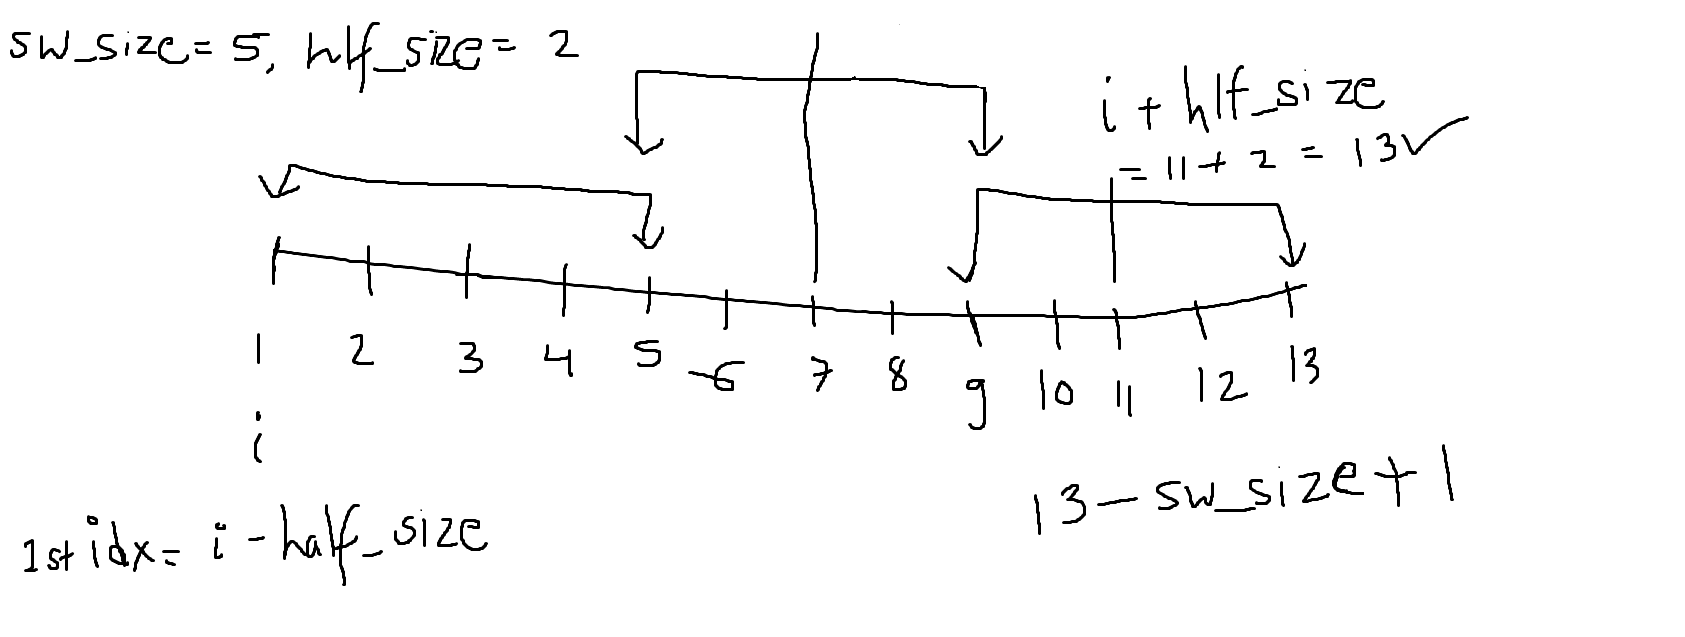 sw_size= 5, hlf_size= 2
i + hlf_size
= 11 + 2 = 13✓
1 2 3 4 5 6 7 8 9 10 11 12 13
i
13 - sw_size + 1
1st idx= i - half_size